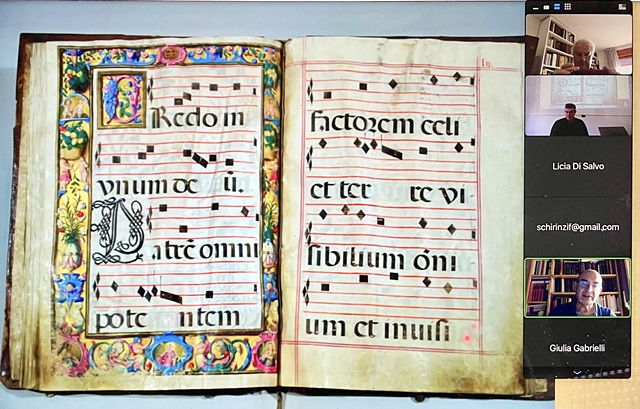 CRedo in
vnum de ū.
Patrē omni
pote ntem
factorem celi
et ter re vi-
sibilium ōni
um et inuisi
Licia Di Salvo
schirinzif@gmail.com
Giulia Gabrielli